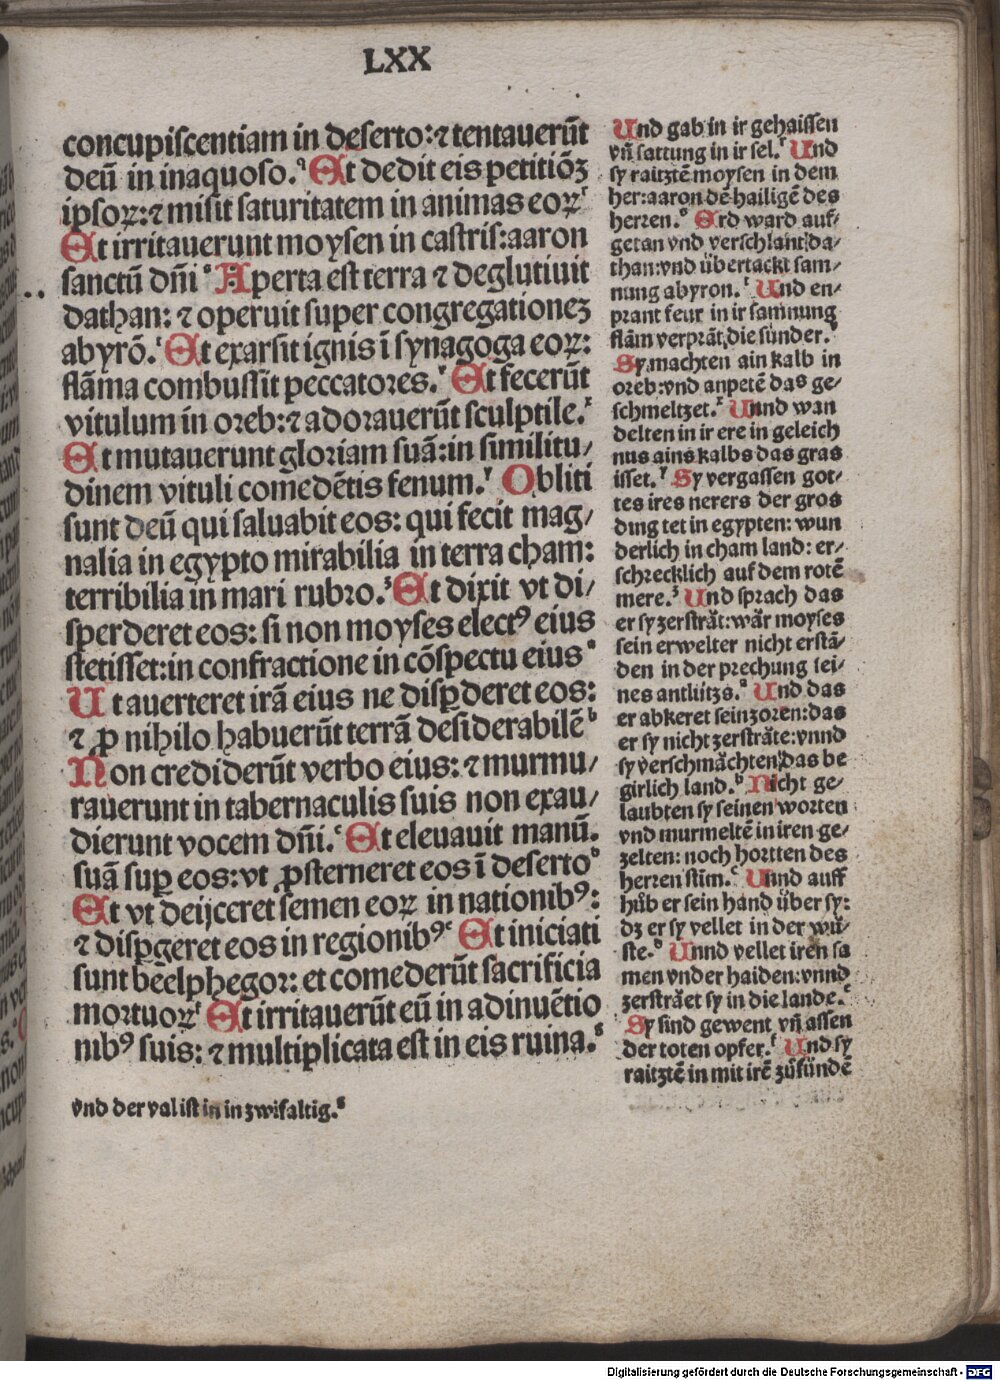 LXX
concupiscentiam in deserto: ⁊ tentauerūt
deū in inaquoso.ᑫ Et dedit eis petitiōꝫ
ipsoꝝ: ⁊ misit saturitatem in animas eoꝝʳ
Et irritauerunt moysen in castris: aaron
sanctū dn̄i ˢ Aperta est terra ⁊ deglutiuit
dathan: ⁊ operuit super congregationeꝫ
abyrō.ᵗ Et exarsit ignis ī synagoga eoꝝ:
flāma combussit peccatores.ᵛ Et fecerūt
vitulum in oreb: ⁊ adorauerūt sculptile.ˣ
Et mutauerunt gloriam suā: in similitu/
dinem vituli comedētis fenum.ʸ Obliti
sunt deū qui saluabit eos: qui fecit mag/
nalia in egypto mirabilia in terra cham:
terribilia in mari rubro.ᶻ Et dixit vt di/
sperderet eos: si non moyses electꝰ eius
stetisset: in confractione in cōspectu eius ᵃ
Ut auerteret irā eius ne disꝑderet eos:
⁊ ꝓ nihilo habuerūt terrā desiderabilē ᵇ
Non crediderūt verbo eius: ⁊ murmu/
rauerunt in tabernaculis suis non exau/
dierunt vocem dn̄i.ᶜ Et eleuauit manū.
suā suꝑ eos: vt ꝓsterneret eos ī deserto ᵈ
Et vt deijceret semen eoꝝ in nationibꝰ:
⁊ disꝑgeret eos in regionibꝰ ᵉ Et iniciati
sunt beelphegor: et comederūt sacrificia
mortuoꝝ ᶠ Et irritauerūt eū in adinuētio
nibꝰ suis: ⁊ multiplicata est in eis ruina.ᵍ
vnd der val ist in in zwifaltig.ᵍ
Und gab in ir gehaissen
vn̄ sattung in ir sel.ʳ Und
sy raitztē moysen in dem
her: aaron dē hailigē des
herren.ˢ Erd ward auf/
getan vnd verschlant da/
than: vnd übertackt sam/
nung abyron.ᵗ Und en/
prant feur in ir samnung
flām verprāt die sünder.ᵛ
Sy machten ain kalb in
oreb: vnd anpetē das ge/
schmeltzet.ˣ Unnd wan
delten in ir ere in geleich
nus ains kalbs das gras
isset.ʸ Sy vergassen got/
tes ires nerers der gros
ding tet in egypten: wun
derlich in cham land: er/
schrecklich auf dem rotē
mere.ᶻ Und sprach das
er sy zersträt: wär moyses
sein erwelter nicht erstā/
den in der prechung sei/
nes antlütz̄s.ᵃ Und das
er abkeret sein zoren: das
er sy nicht zersträte: vnnd
sy verschmächten das be
girlich land.ᵇ Nicht ge/
laubten sy seinen worten
vnd murmeltē in iren ge/
zelten: noch hortten des
herren stim̄.ᶜ Unnd auff
hůb er sein hand über sy:
dz er sy vellet in der wü/
ste.ᵈ Unnd vellet iren sa
men vnder haiden: vnnd
zersträet sy in die lande.ᵉ
Sy sind gewent vn̄ assen
der toten opfer.ᶠ Und sy
raitztē in mit irē zůfündē
Digitalisierung gefördert durch die Deutsche Forschungsgemeinschaft - DFG